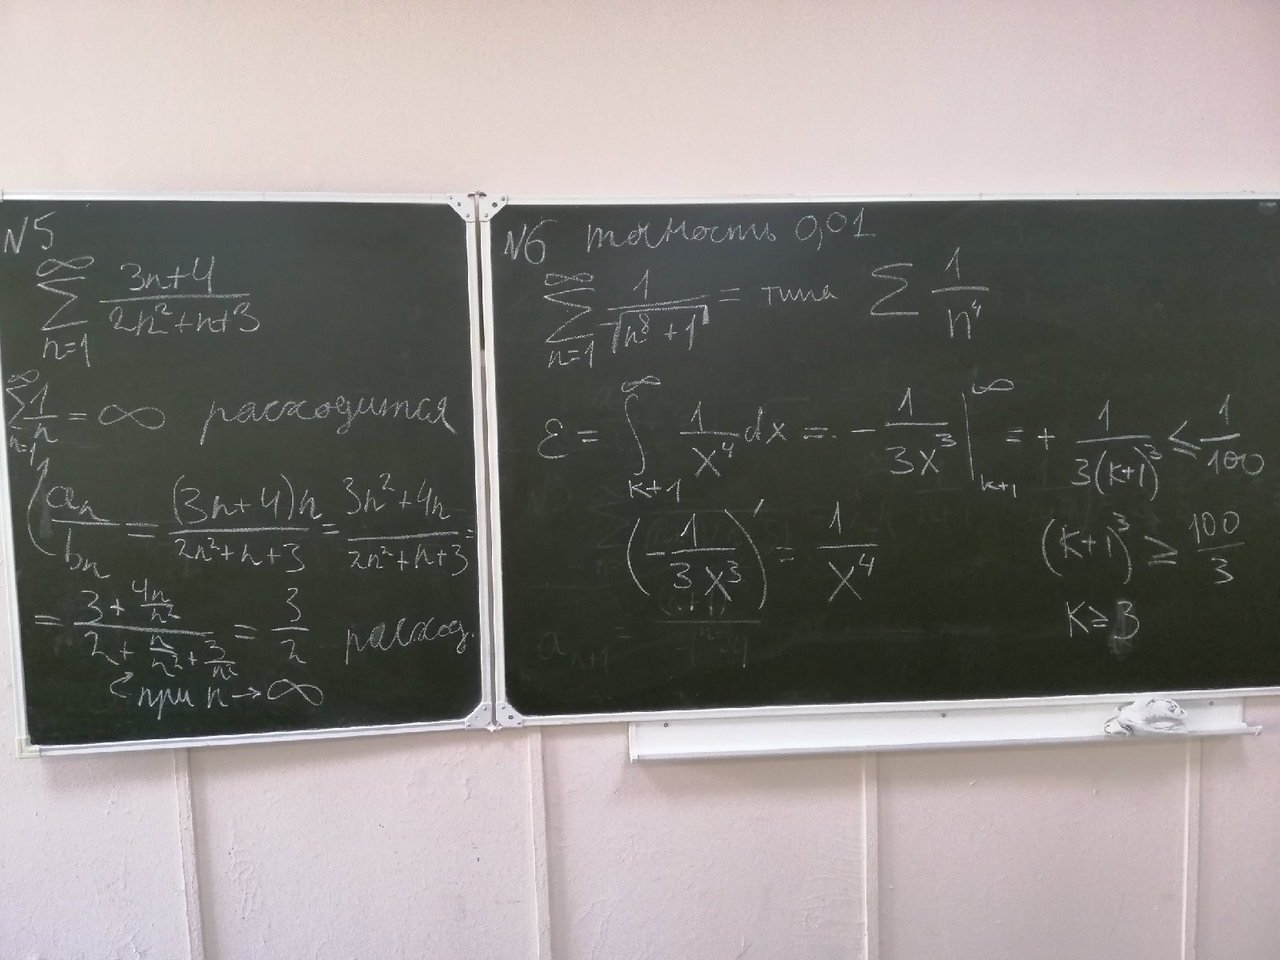 N5
∞
∑ (3n+4)/(2n²+n+3)
n=1
∞
∑ 1/n = ∞ расходится
n=1
(aₙ/bₙ = (3n+4)n/(2n²+n+3) = (3n²+4n)/(2n²+n+3) =
= (3 + 4n/n²)/(2 + n/n² + 3/n²) = 3/2 расход.
при n → ∞
N6 точность 0,01
∞
∑ 1/√(n⁸+1) = типа ∑ 1/n⁴
n=1
ε = ∫_{k+1}^{∞} 1/x⁴ dx = - 1/(3x³) |_{k+1}^{∞} = + 1/(3(k+1)³) ≤ 1/100
(- 1/(3x³))' = 1/x⁴
(k+1)³ ≥ 100/3
K ≥ 3